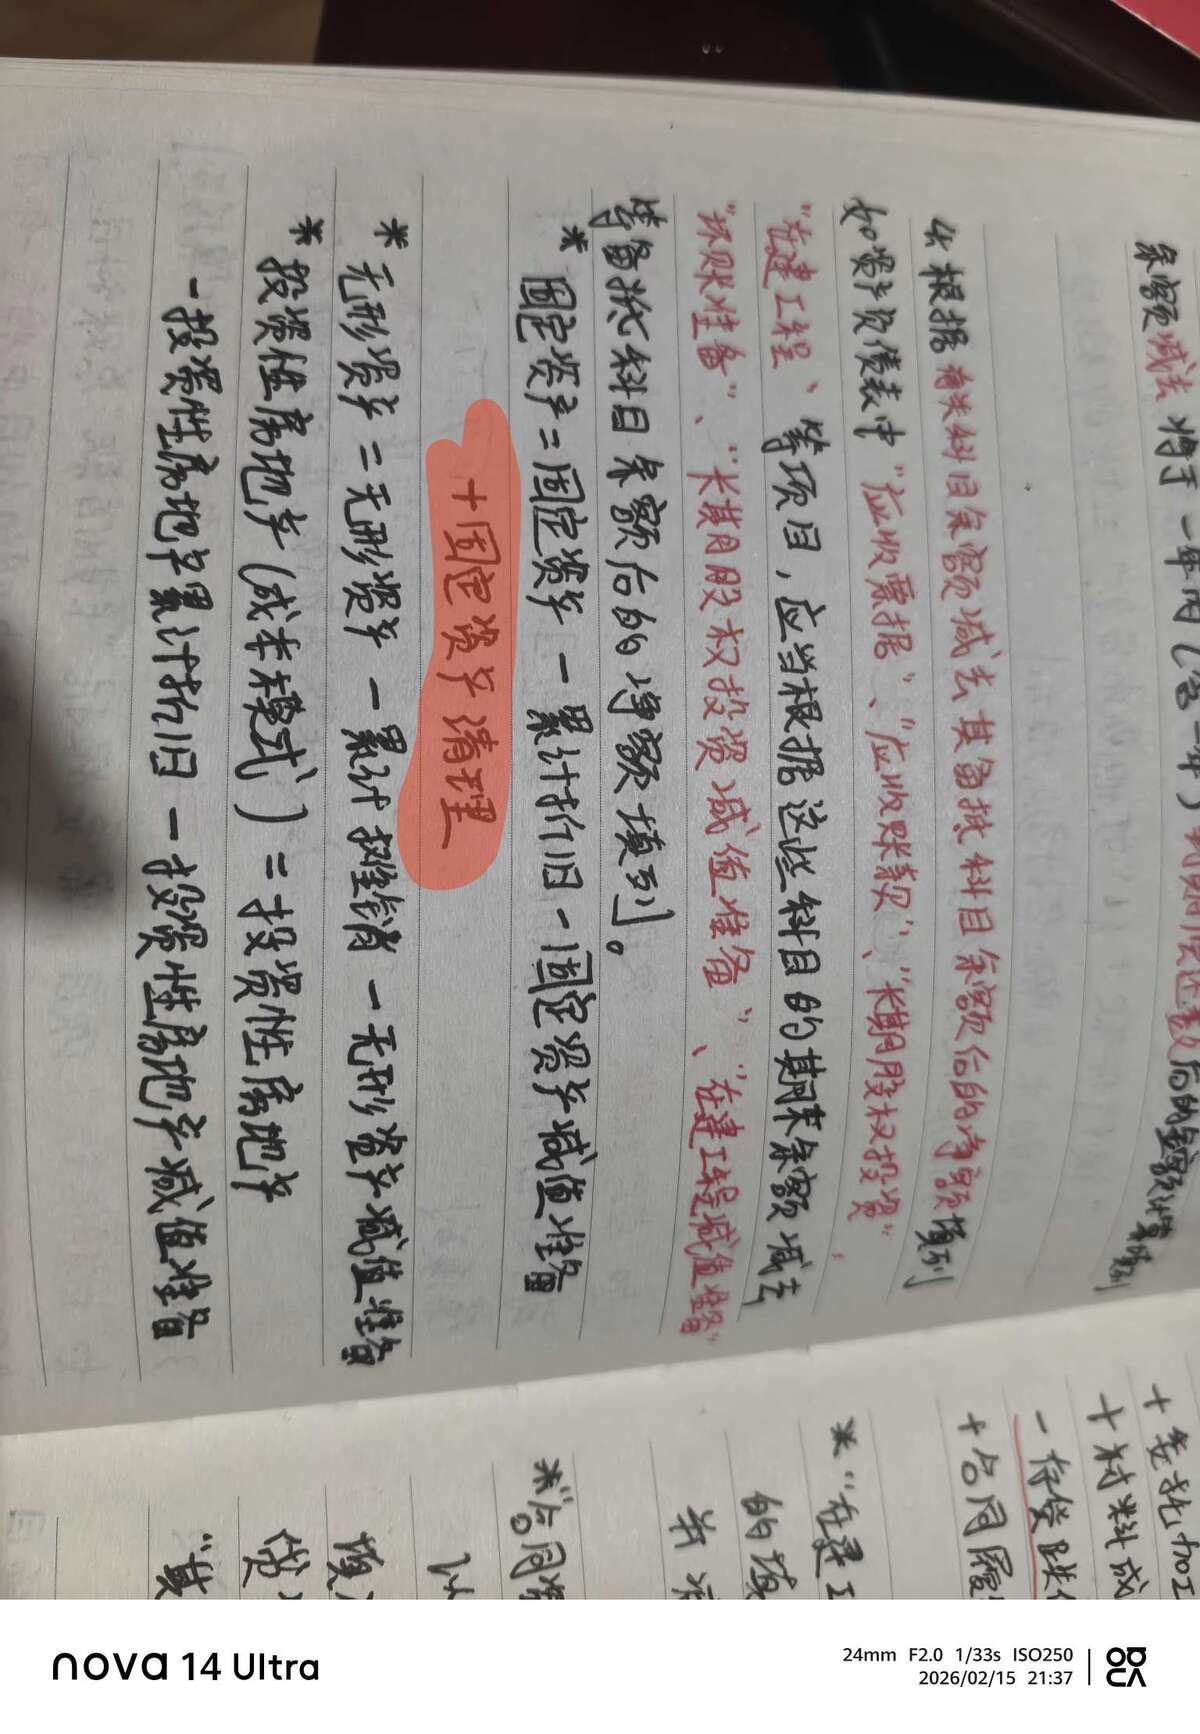 余额减去将于一年内(含一年)
后的金额计算填列
4、根据有关科目余额减去其备抵科目余额后的净额填列
如资产负债表中"应收票据"、"应收账款"、"长期股权投资"、
"在建工程"等项目,应当根据这些科目的期末余额减去
"坏账准备"、"长期股权投资减值准备"、"在建工程减值准备"
等备抵科目余额后的净额填列。
* 固定资产=固定资产-累计折旧-固定资产减值准备
+固定资产清理
* 无形资产=无形资产-累计摊销-无形资产减值准备
* 投资性房地产(成本模式)=投资性房地产
-投资性房地产累计折旧-投资性房地产减值准备
+委托加工
+材料成
-存货跌
+合同履
*"在建工
的项
并
*"合同资
以
项
贷
"其
nova 14 Ultra
24mm F2.0 1/33s ISO250
2026/02/15 21:37